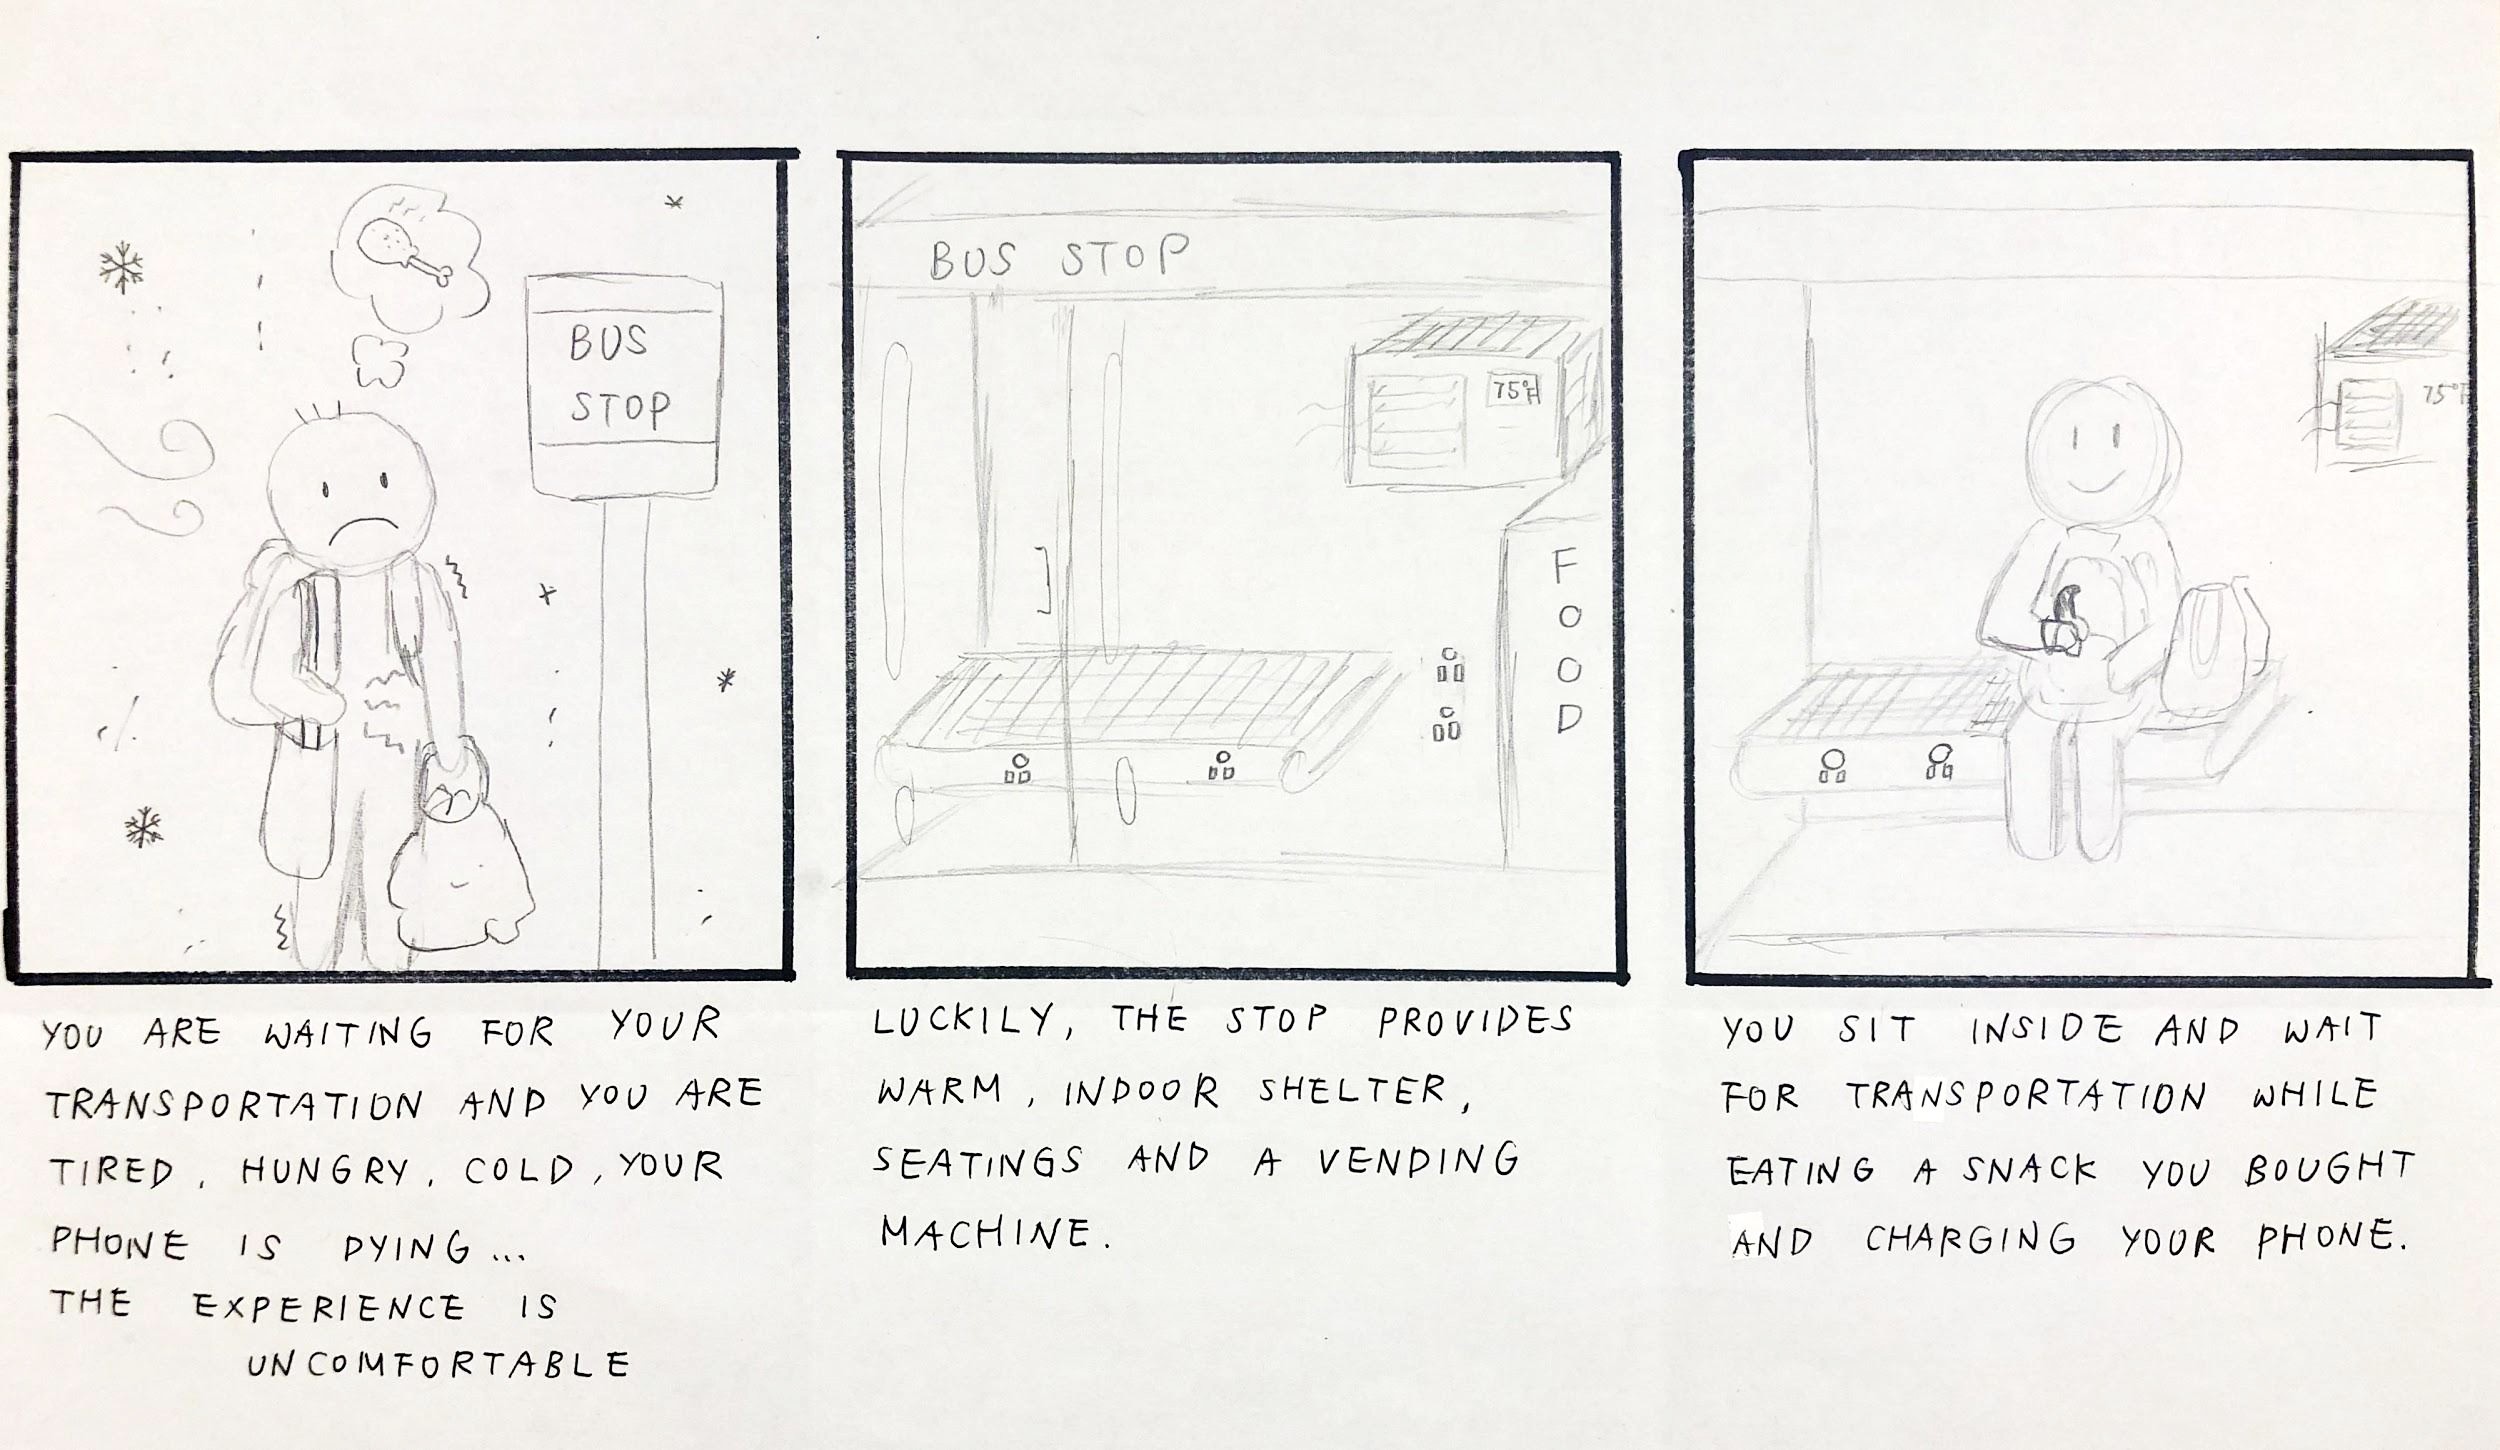 BUS
STOP
YOU ARE WAITING FOR YOUR
TRANSPORTATION AND YOU ARE
TIRED, HUNGRY, COLD, YOUR
PHONE IS DYING...
THE EXPERIENCE IS
UNCOMFORTABLE
BUS STOP
75°F
F
O
O
D
LUCKILY, THE STOP PROVIDES
WARM, INDOOR SHELTER,
SEATINGS AND A VENDING
MACHINE.
75°F
YOU SIT INSIDE AND WAIT
FOR TRANSPORTATION WHILE
EATING A SNACK YOU BOUGHT
AND CHARGING YOUR PHONE.